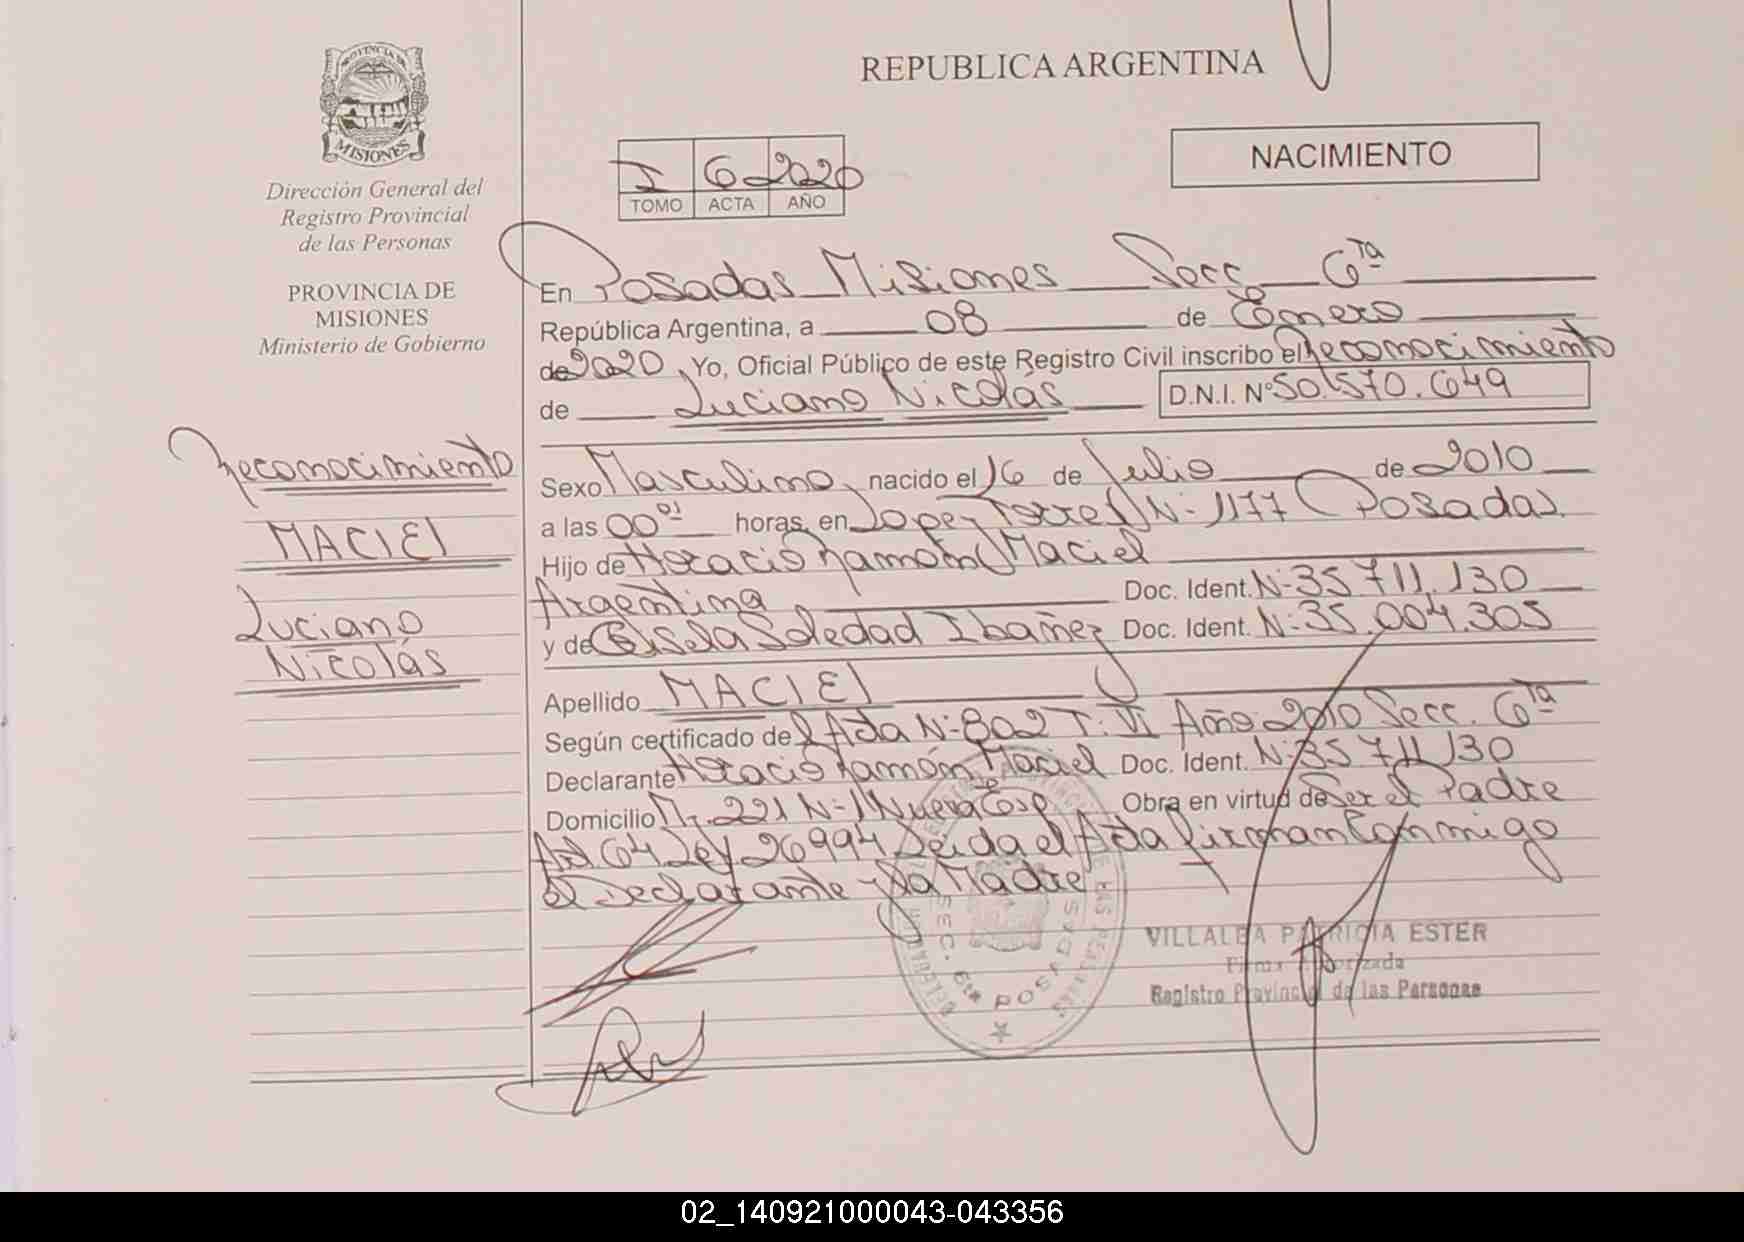 REPUBLICA ARGENTINA
PROVINCIA DE
MISIONES
Dirección General del
Registro Provincial
de las Personas
PROVINCIA DE
MISIONES
Ministerio de Gobierno
I 6 2020
TOMO ACTA AÑO
NACIMIENTO
En Posadas Misiones Secc. 6ta
República Argentina, a 08 de Enero
de 2020, Yo, Oficial Público de este Registro Civil inscribo el Reconocimiento
de Luciano Nicolás D.N.I. Nº 50.570.649
Reconocimiento
MACIEl
Luciano
Nicolás
Sexo Masculino, nacido el 16 de Julio de 2010
a las 00 01 horas, en Lopez Torres N- 1177 Posadas.
Hijo de Horacio Ramón Maciel
Argentina Doc. Ident. N- 35 711.130
y de Gisela Soledad Ibañez Doc. Ident. N- 35.004.305
Apellido MACIEl
Según certificado de el Acta N- 802 T. VI Año 2010 Secc. 6ta
Declarante Horacio Ramón Maciel Doc. Ident. N- 35 711 130
Domicilio 221 N-1 Nueva Esp Obra en virtud de Ser el Padre
Art 64 Ley 26994 Leida el Acta firman Conmigo
el Declarante y la Madre
SEC. 6ta POSADAS
VILLALBA PATRICIA ESTER
Firma Autorizada
Registro Provincial de las Personas
02_140921000043-043356